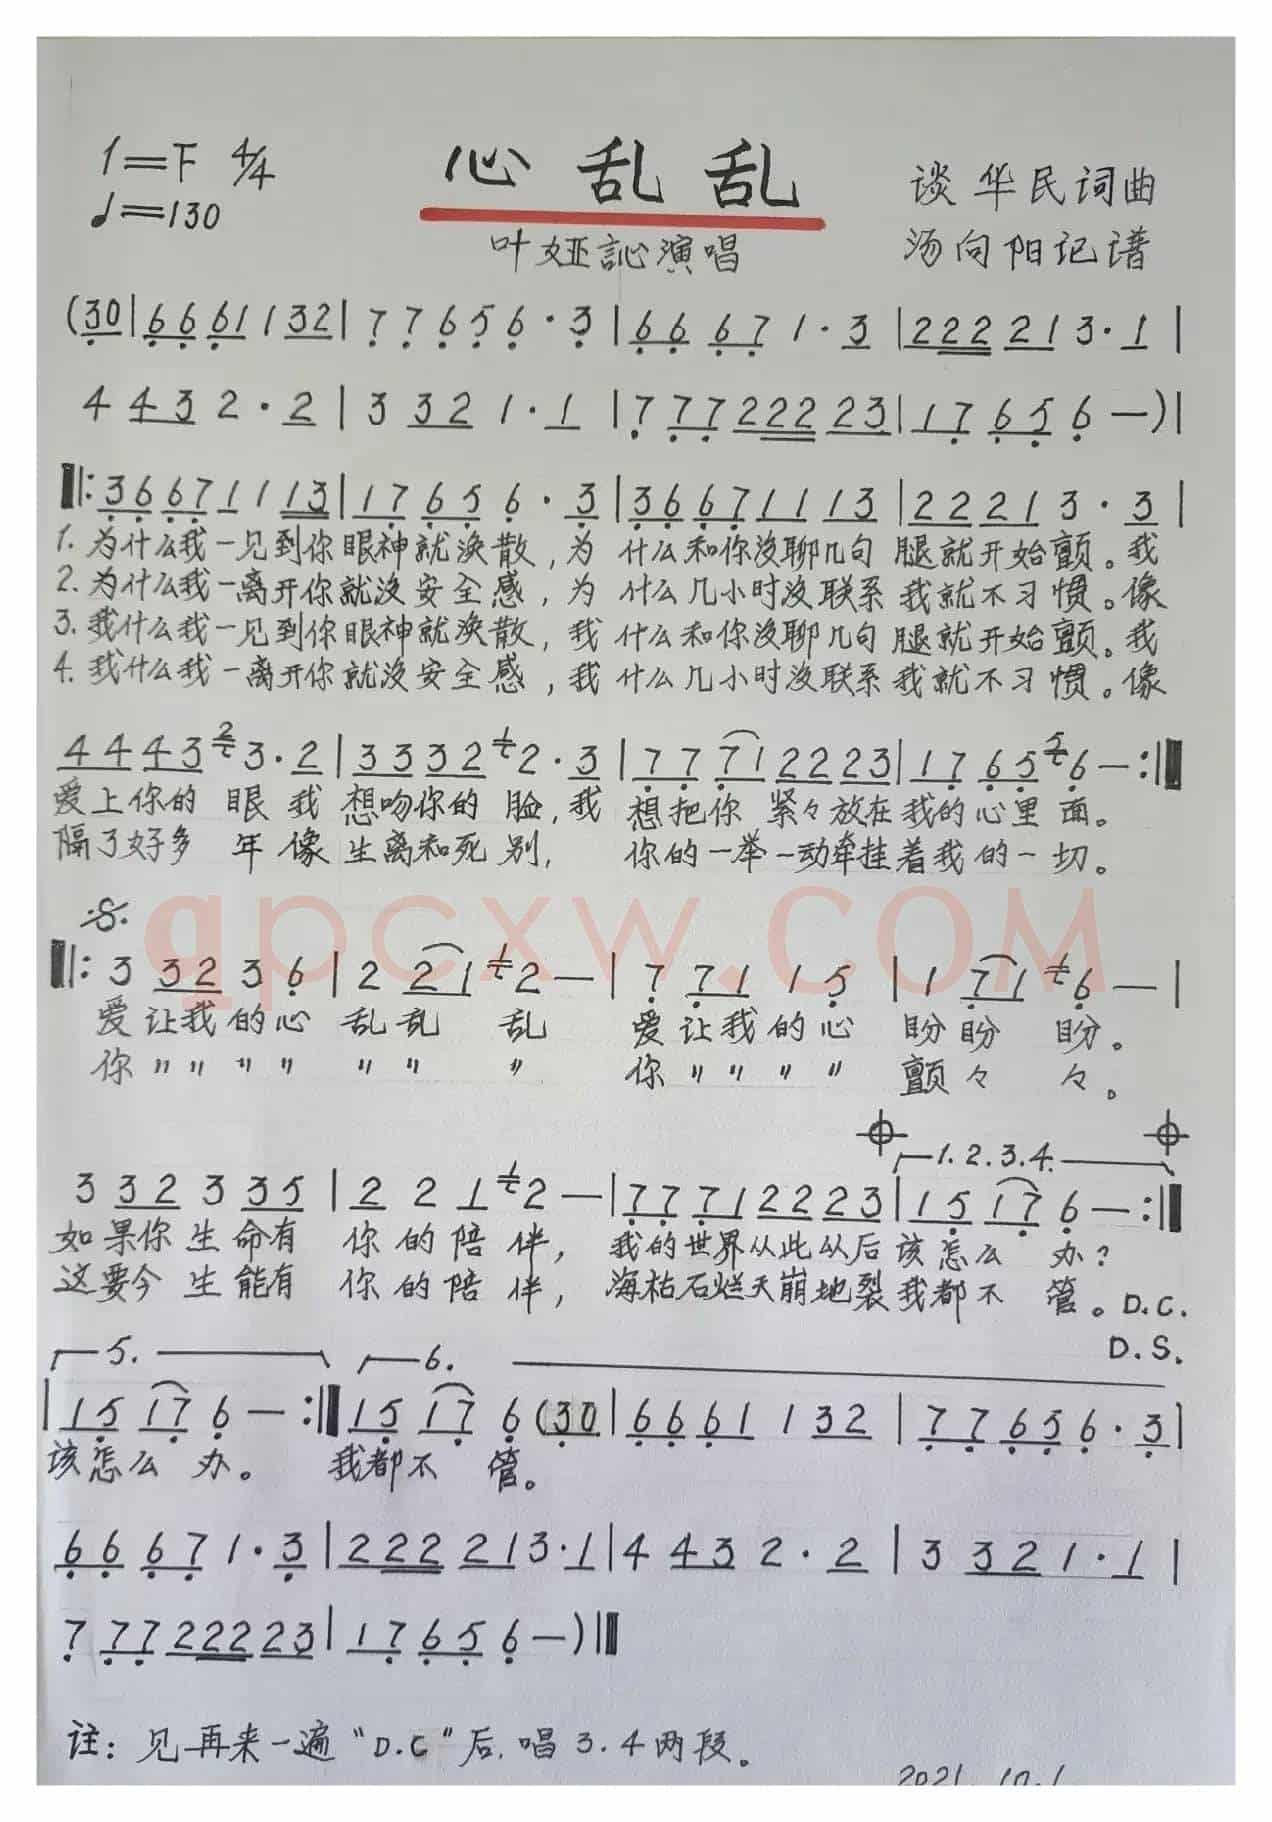 1=F 4/4
♩=130
心乱乱
谈华民词曲
叶娅訫演唱
汤向阳记谱
(30|6661 1 32|7 7 6 5 6·3|66 67 1·3|2222 21 3·1|
4 43 2·2|3 321 1·1|7 77 222 23|17 65 6—)|
‖:36671 1 13|17 65 6·3|3667 11 13|22 21 3·3|
1.为什么我一见到你眼神就涣散,为什么和你没聊几句腿就开始颤。我
2.为什么我一离开你就没安全感,为什么几小时没联系我就不习惯。像
3.我什么我一见到你眼神就涣散,我什么和你没聊几句腿就开始颤。我
4.我什么我一离开你就没安全感,我什么几小时没联系我就不习惯。像
44 43 3·2|33 32 2·3|77 71 22 23|17 65 6—:‖
爱上你的眼我想吻你的脸,我想把你紧々放在我的心里面。
隔了好多年像生离和死别,你的一举一动牵挂着我的一切。
qpcxw.COM
‖:3 32 3 6|2 21 2—|7 71 1 5|1 71 6—|
爱让我的心乱乱乱 爱让我的心盼盼盼。
你〃〃〃〃〃〃〃 你〃〃〃〃颤々々。
1.2.3.4.
3 32 3 35|2 2 1 2—|77 71 22 23|15 17 6—:‖
如果你生命有你的陪伴,我的世界从此从后该怎么办?
这要今生能有你的陪伴,海枯石烂天崩地裂我都不管。D.C.
D.S.
5. 6.
|15 17 6—:‖15 17 6(30|66 61 1 32|77 65 6·3|
该怎么办。我都不管。
66 67 1·3|2222 21 3·1|4 43 2·2|3 32 1·1|
7 77 222 23|17 65 6—)‖
注:见再来一遍“D.C”后,唱3.4两段。
2021.10.1